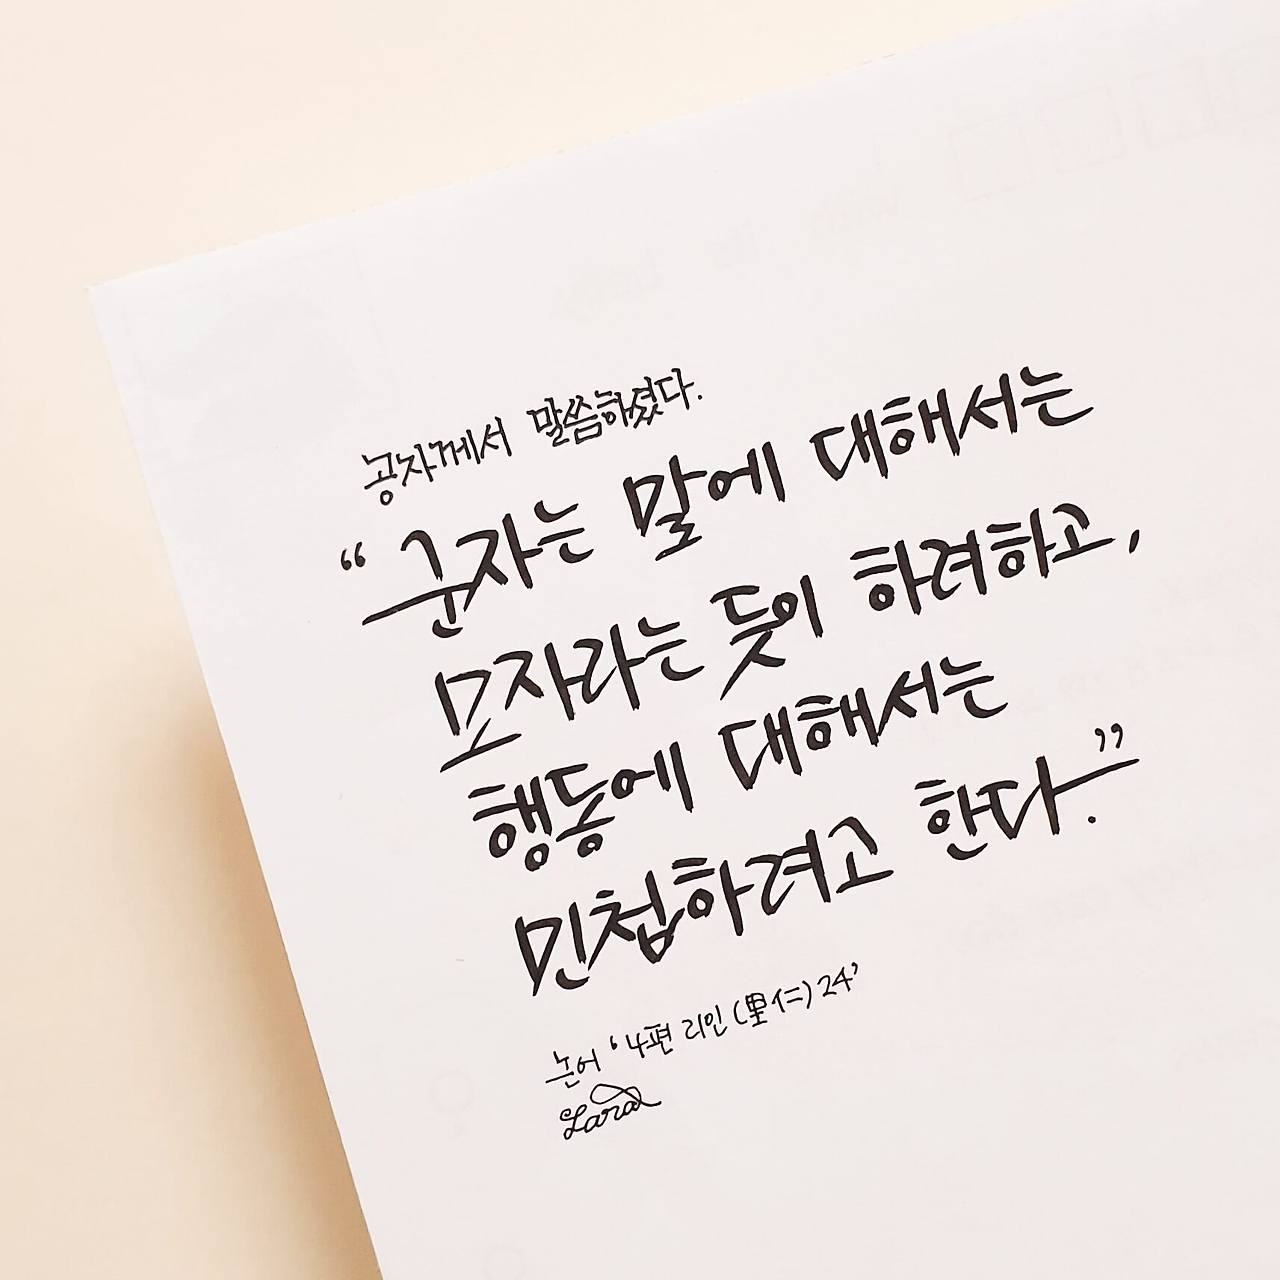 공자께서 말씀하셨다.
“군자는 말에 대해서는
모자라는 듯이 하려하고,
행동에 대해서는
민첩하려고 한다.”
논어 ‘4편 리인(里仁) 24’
Lara